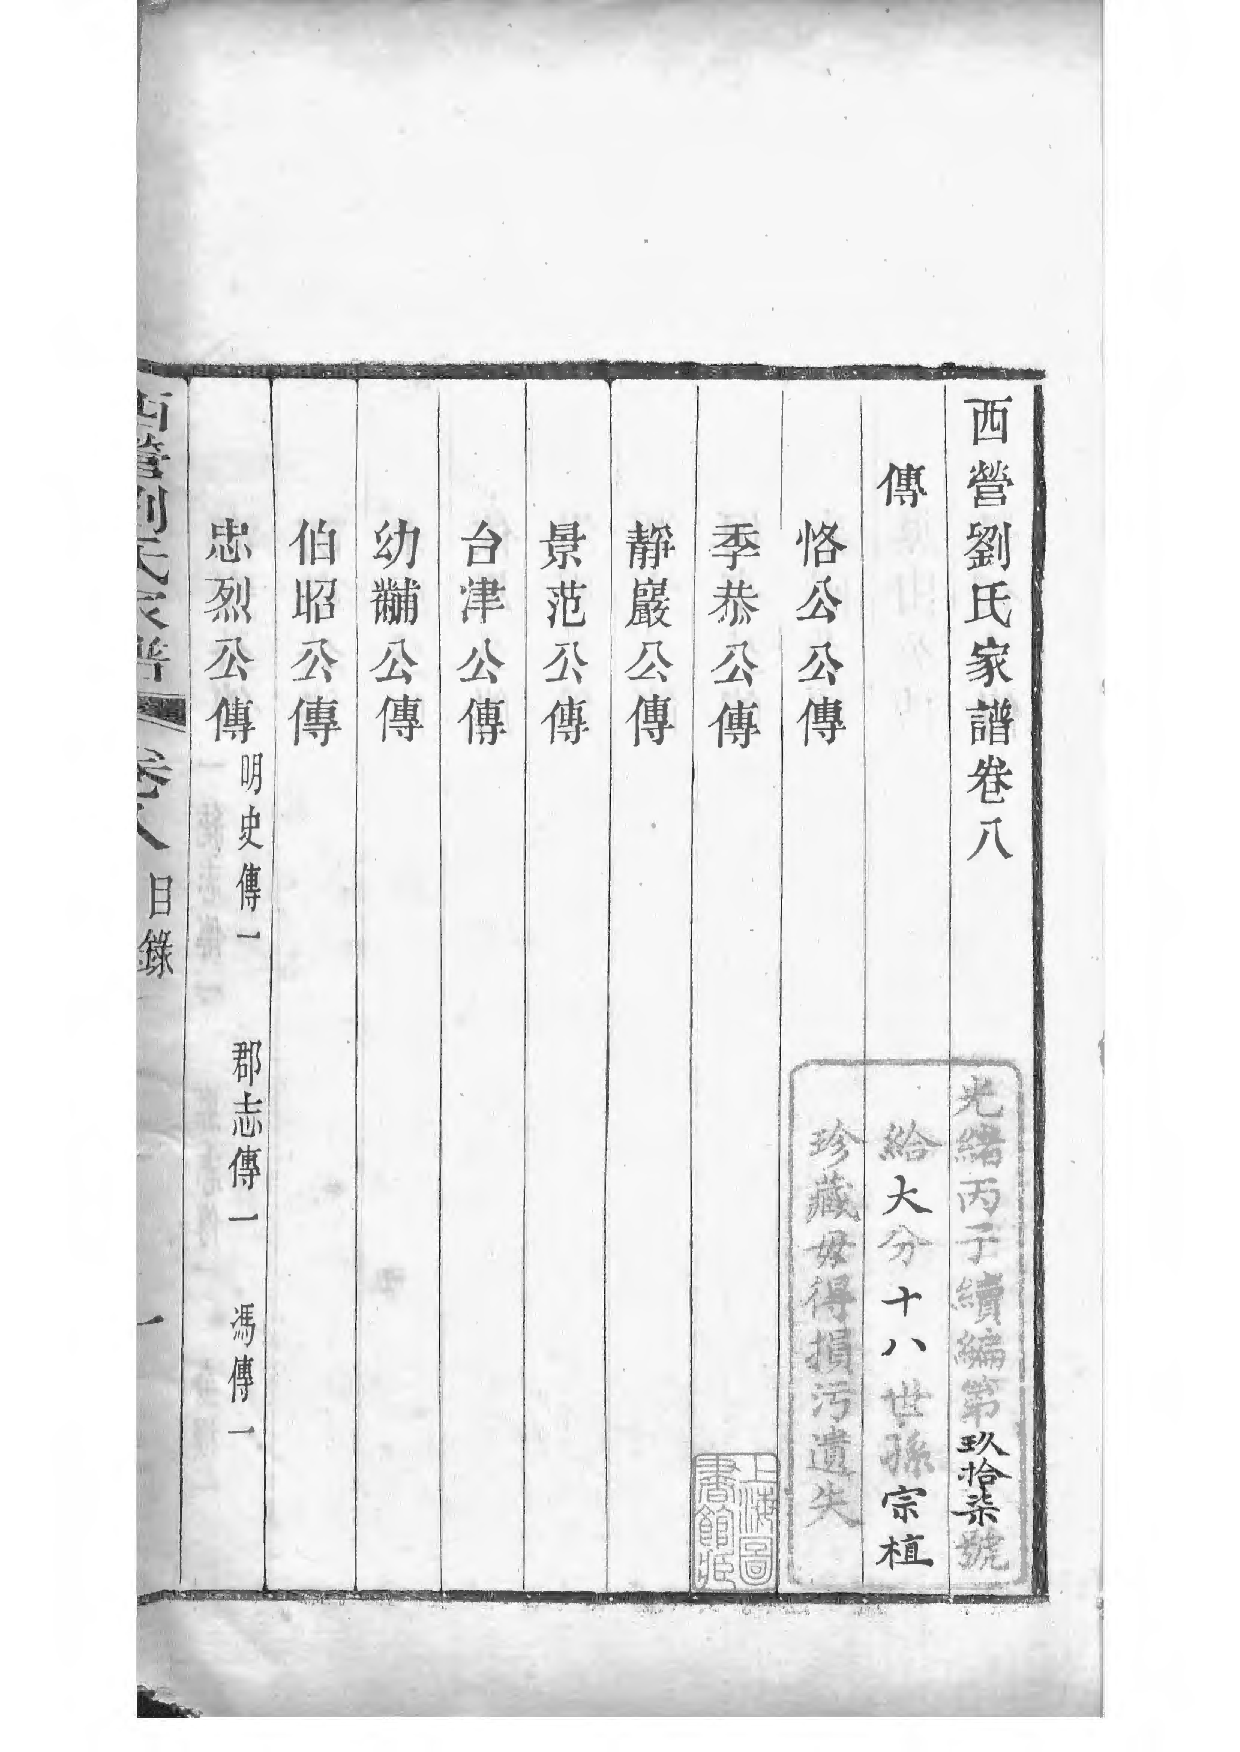 西營劉氏家譜卷八
傳
恪公公傳
季恭公傳
靜巖公傳
景范公傳
台津公傳
幼黼公傳
伯昭公傳
忠烈公傳 明史傳一 郡志傳一 馮傳一
西營劉氏家譜 卷八 目錄 一
光緒丙子續編第玖拾柒號
給大分十八世孫宗植
珍藏毋得損污遺失
上海圖書館藏